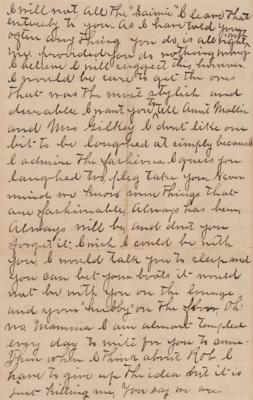 I will not, all the "Saime" I leave that
entirely to you. As I have told you
often any thing you do, is all right
provided you do nothing wrong
I believe I will this however
I would be sure to get the ones
that was the most stylish and
durable I want you tell Aunt Mollie
and Mrs Gilkey I don't like one
bit to be laughed at simply because
I admire the fashions. I guess you
laughed too, take you never
mind me know some things that
are fashionable. Always has been
Always will be, and don't you
forget it. I wish I could be with
you, I would talk you to sleep and
you can bet your boots it would
not be with you on the lounge
and your "hubby" on the floor. Oh
no Mamma I am almost tempted
every day to write for you to come.
Then when I think about Rob I
have to give up the idea but it is
just killing me. You say we are